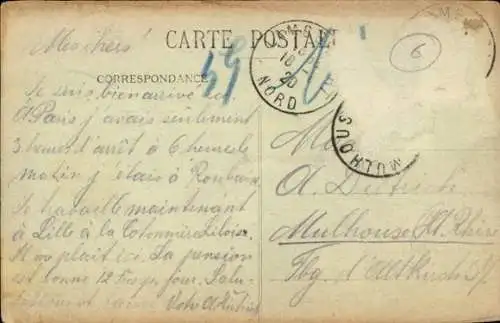 Mes chers!
CARTE POSTALE
CORRESPONDANCE
59
NORD
18
20
6
MULHOUS
Je suis bien arrivé ici.
A Paris j'avais seulement
3 heures d'arrêt à 6 heures le
matin j'étais à Roubaix
Je travaille maintenant
à Lille à la Cotonnière Lilloise
Il me plait ici. La pension
est bonne 12 par jour. Salu-
Votre
A. Dietrich
Mulhouse Ht. Rhin
Fbg. d'Altkirch